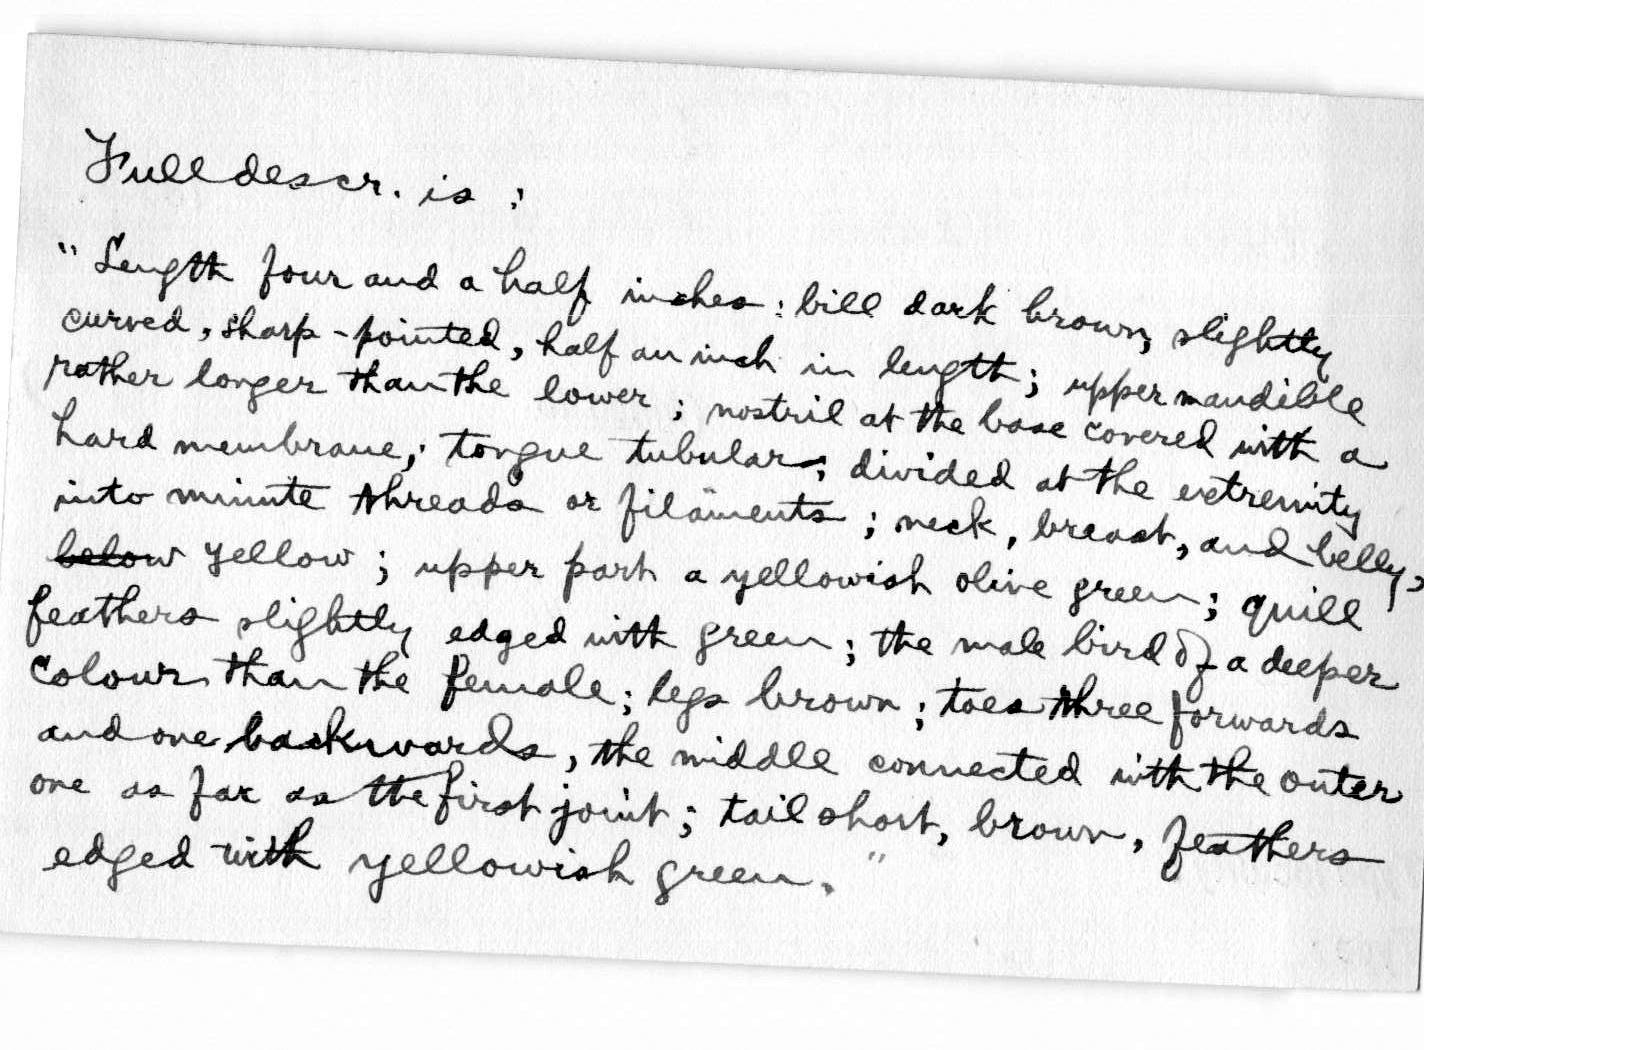 Full descr. is :
" Length four and a half inches : bill dark brown, slightly
curved, sharp-pointed, half an inch in length ; upper mandible
rather longer than the lower ; nostril at the base covered with a
hard membrane ; tongue tubular ; divided at the extremity
into minute threads or filaments ; neck, breast, and belly,
below yellow ; upper part a yellowish olive green ; quill
feathers slightly edged with green ; the male bird of a deeper
colour than the female ; legs brown ; toes three forwards
and one backwards, the middle connected with the outer
one as far as the first joint ; tail short, brown, feathers
edged with yellowish green. "